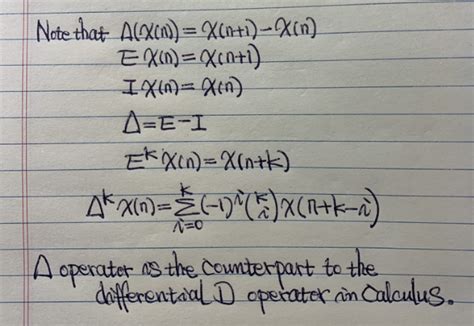 Note that Δ(x(n)) = x(n+1) - x(n)
E x(n) = x(n+1)
I x(n) = x(n)
Δ = E - I
E^k x(n) = x(n+k)
Δ^k x(n) = ∑_{i=0}^{k} (-1)^i (k i) x(n+k-i)
Δ operator is the counterpart to the
differential D operator in Calculus.